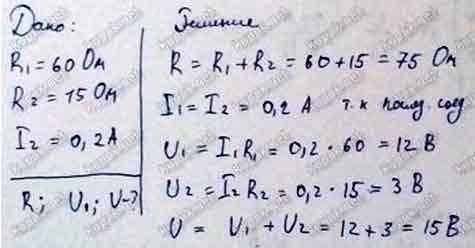 Дано:
R₁ = 60 Ом
R₂ = 15 Ом
I₂ = 0,2 А
R; U₁; U-?
Решение
R = R₁ + R₂ = 60 + 15 = 75 Ом
I₁ = I₂ = 0,2 А т.к посл. соед.
U₁ = I₁R₁ = 0,2 · 60 = 12 В
U₂ = I₂ R₂ = 0,2 · 15 = 3 В
U = U₁ + U₂ = 12 + 3 = 15 В